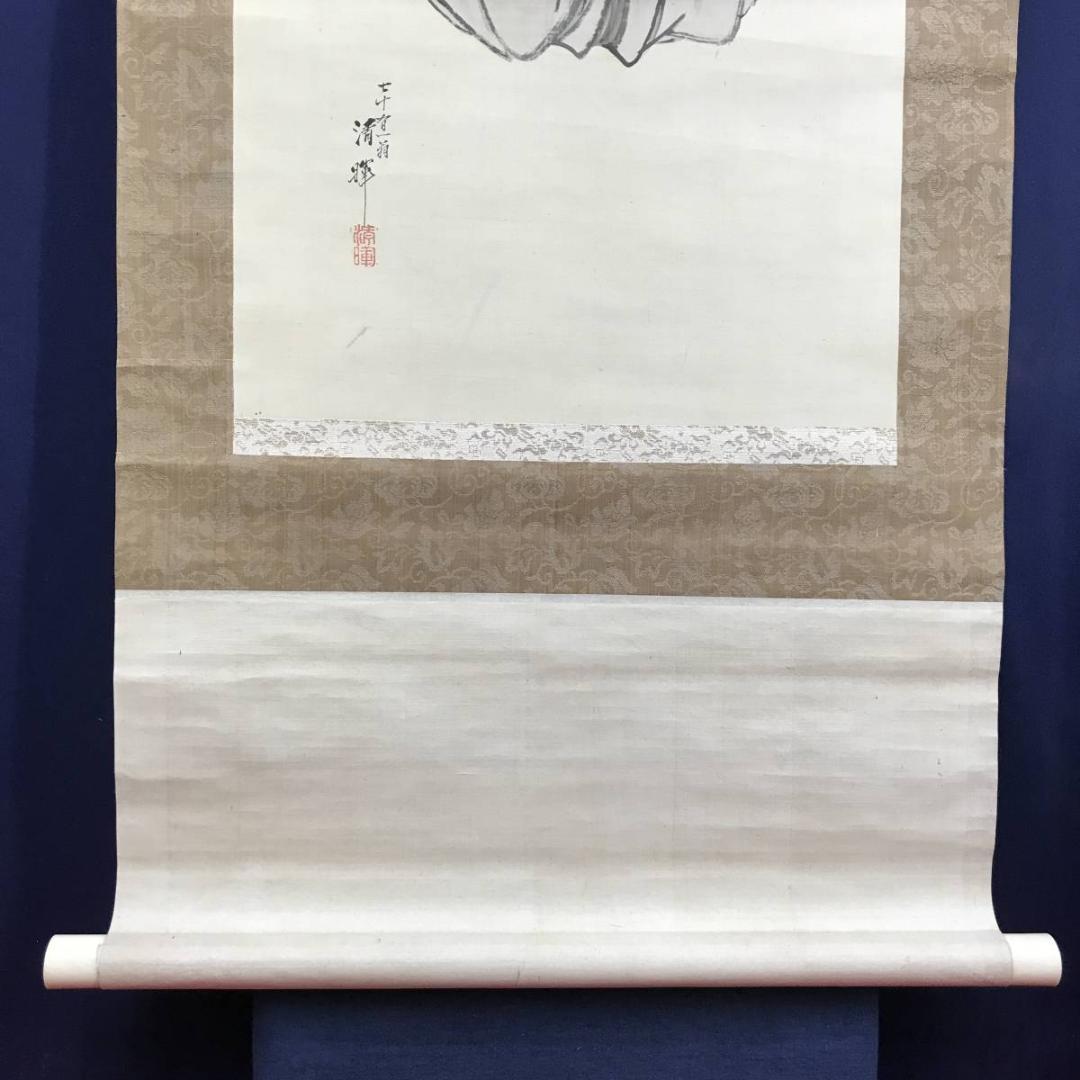 七十有一翁
清暉
清暉